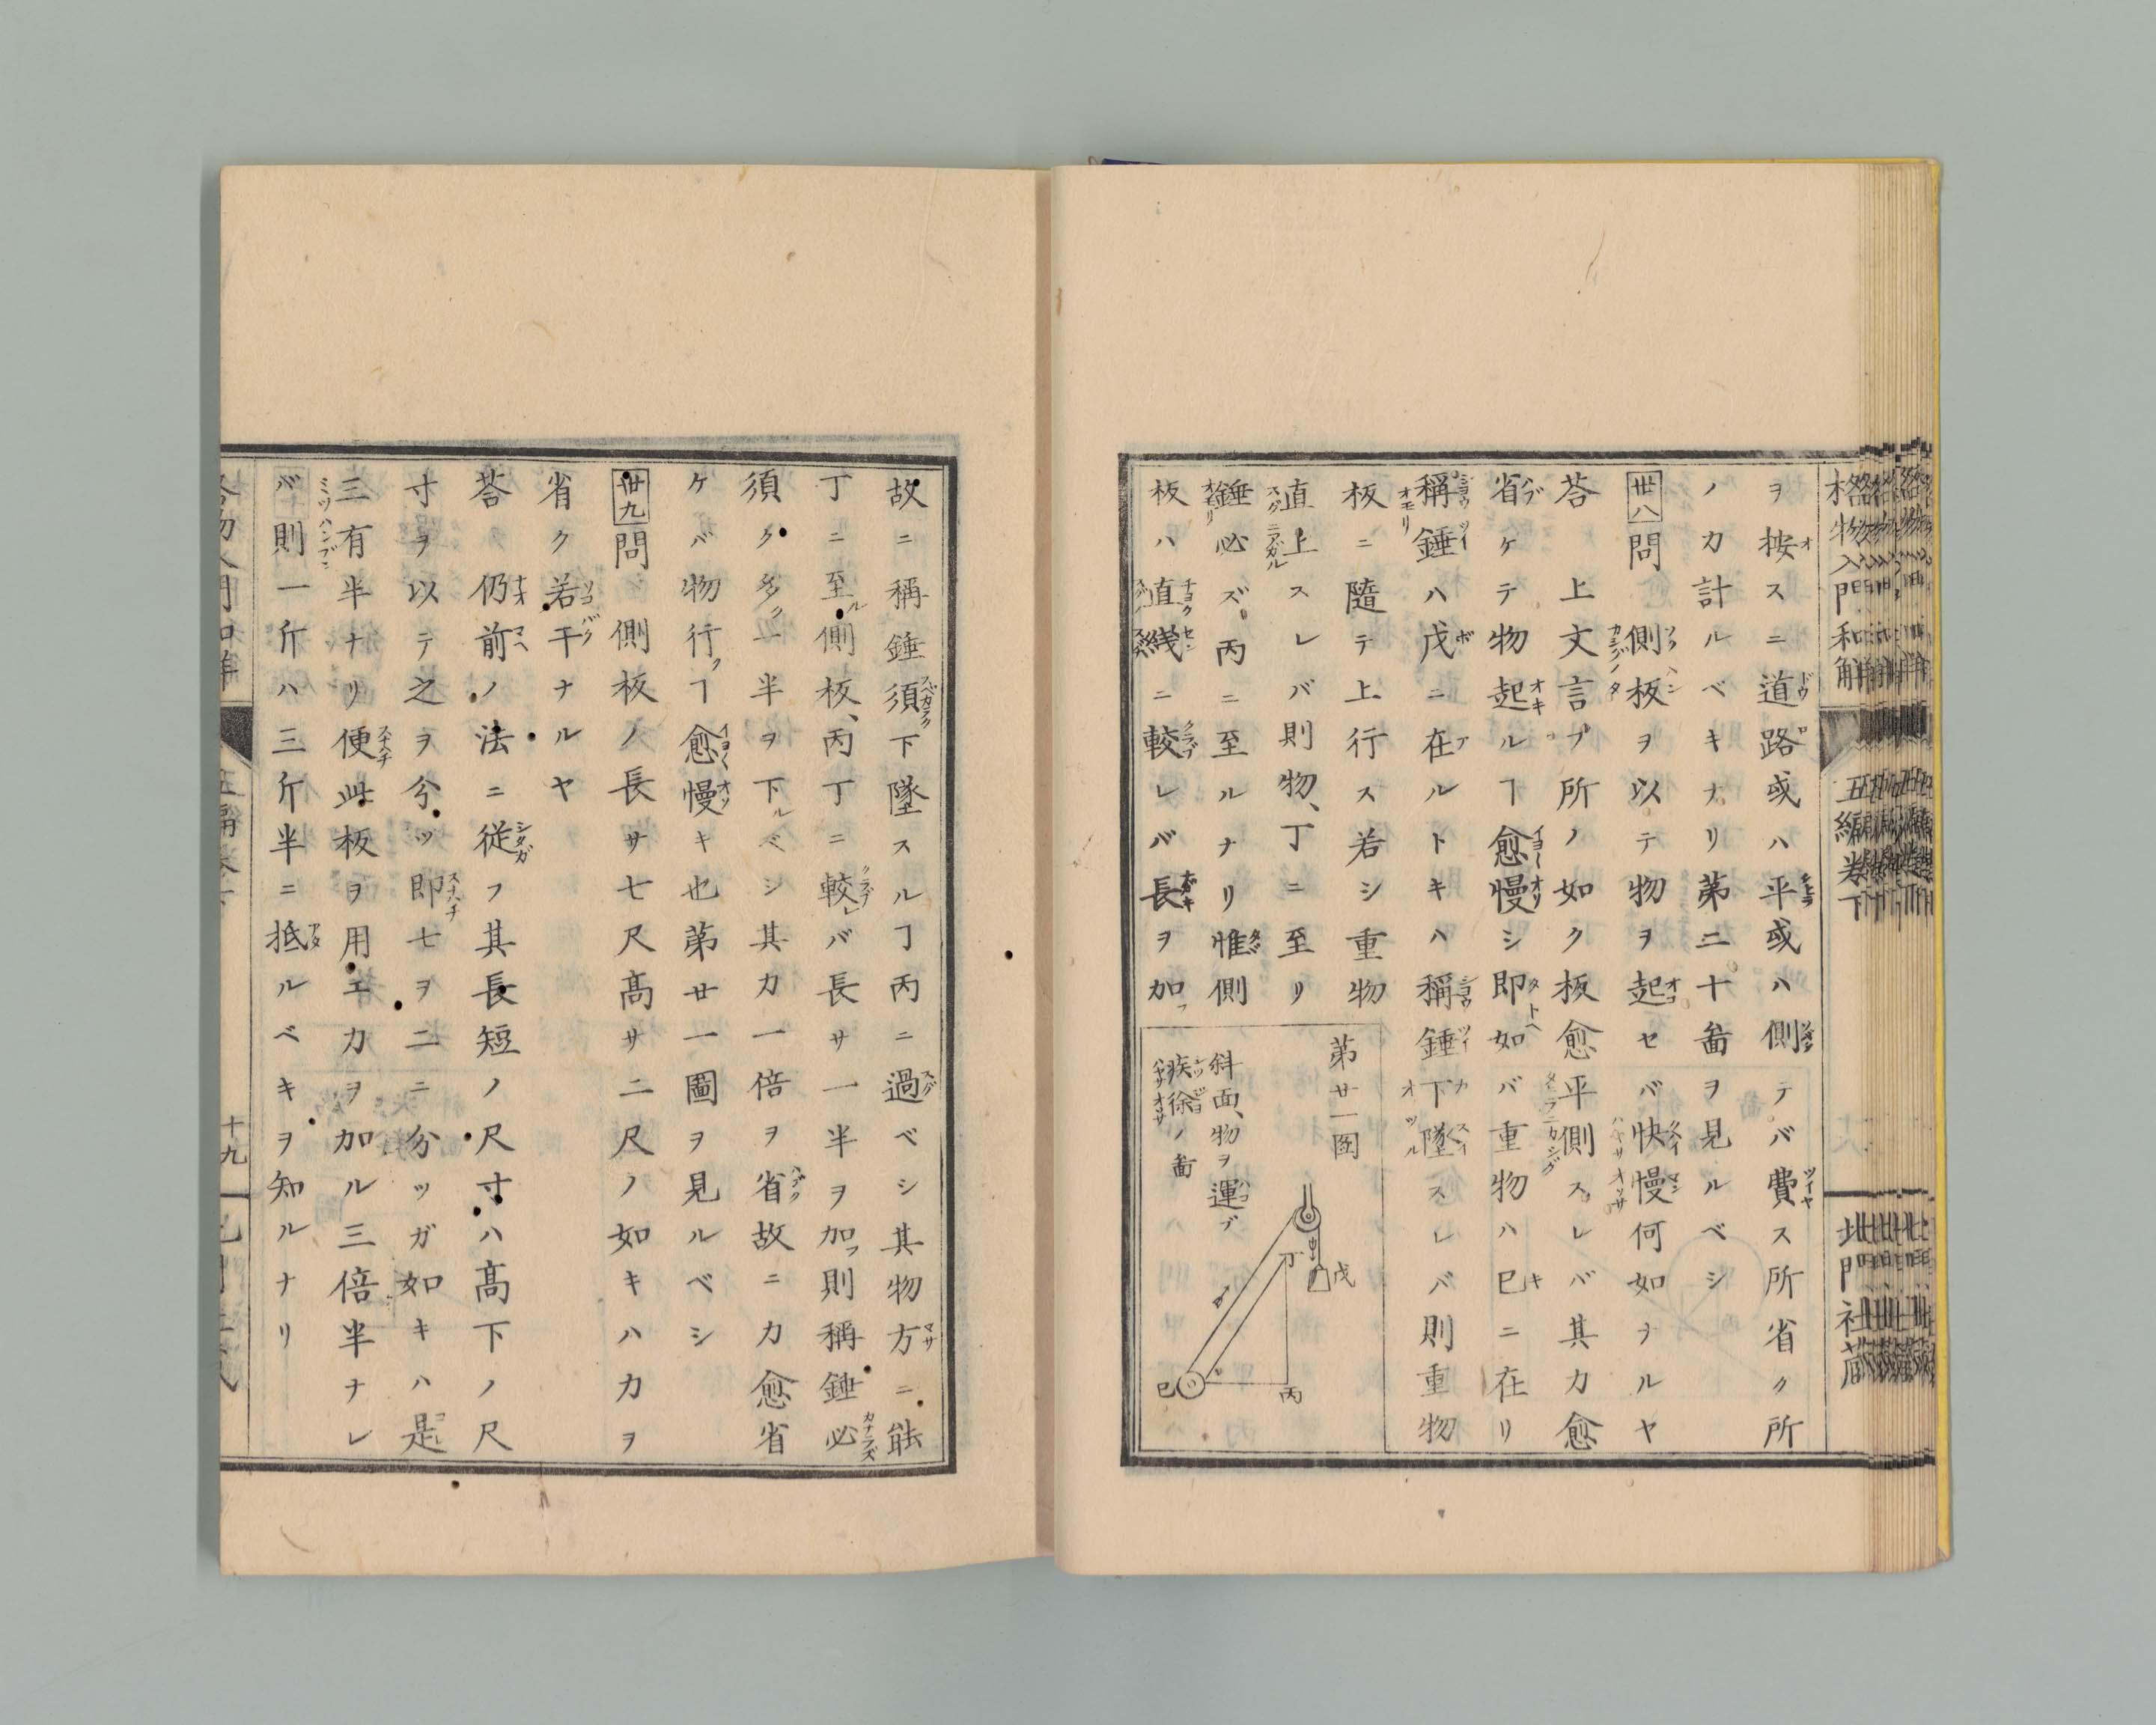 格物入門和解
五編巻下
北門社蔵
ヲ按スニ道路或ハ平或ハ側テバ費ス所省ク所
ノ力計ルベキナリ第二十啚ヲ見ルベシ
卅八問 側板ヲ以テ物ヲ起セバ快慢何如ヲルヤ
荅 上文言ブ所ノ如ク板愈平側スレバ其力愈
省ケテ物起ルヿ愈慢シ即如バ重物ハ巳ニ在リ
稱錘ハ戊ニ在ルトキハ稱錘下墜スレバ則重物
板ニ隨テ上行ス若シ重物
直上スレバ則物、丁ニ至リ
錘必ズ丙ニ至ルナリ惟側
板ハ直线ニ較レバ長ヲ加フ
第廿一図
斜面、物ヲ運ブ
疾徐ノ啚
戊
丁
丙
巳
故ニ稱錘須下墜スルヿ丙ニ過ベシ其物方ニ能
丁ニ至ル側板、丙丁ニ較レバ長サ一半ヲ加フ則稱錘必
須ク多ク一半ヲ下ルベシ其力一倍ヲ省故ニ力愈省
ケバ物行クヿ愈慢キ也第廿一圖ヲ見ルベシ
卅九問 側板ノ長サ七尺高サ二尺ノ如キハ力ヲ
省ク若干ナルヤ
荅 仍前ノ法ニ従フ其長短ノ尺寸ハ高下ノ尺
寸ヲ以テ之ヲ分ツ即七ヲ二ニ分ツガ如キハ是
三有半ナリ便此板ヲ用エ力ヲ加ル三倍半ナレ
バ則一斤ハ三斤半ニ抵ルベキヲ知ルナリ
十九